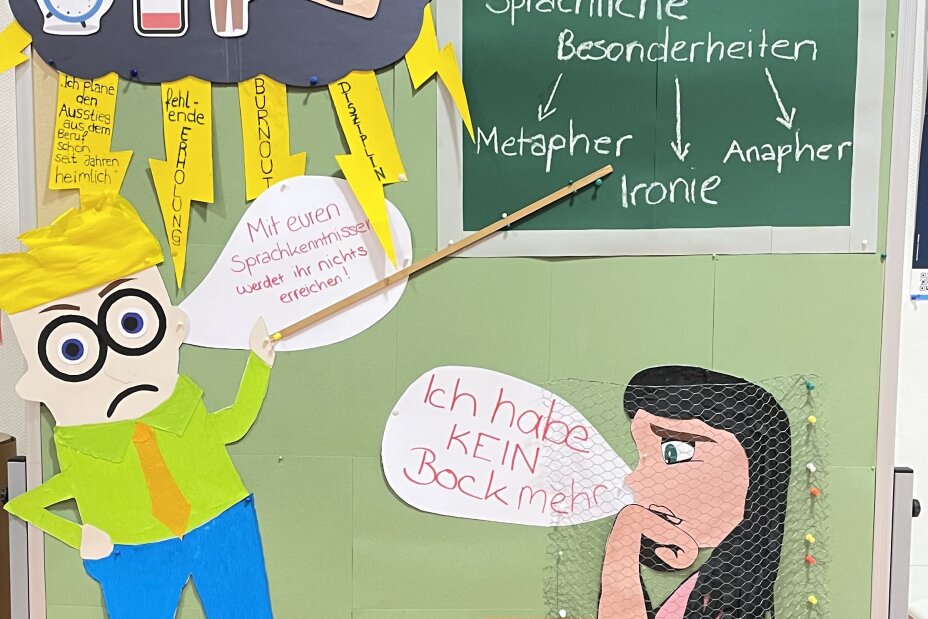 Sprachliche
Besonderheiten
Metapher
Ironie
Anapher
"Ich plane
den
Ausstieg
aus dem
Beruf
schon
seit Jahren
heimlich"
fehl-
ende
ERHOLUNG
BURNOUT
DISZIPLIN
Mit euren
Sprachkenntnissen
werdet ihr nichts
erreichen!
Ich habe
KEIN
Bock mehr